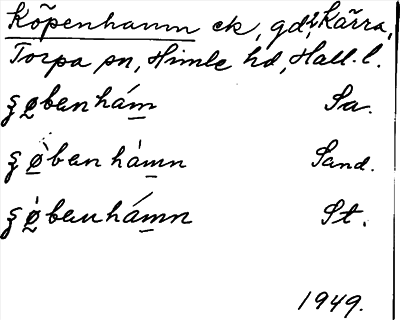 Köpenhamn ek, gd i Kärra,
Torpa sn, Himle hd, Hall. l.
ʂøbenhám Sa.
ʂø̀benhàmn Sand.
ʂø̀benhámn St.
1949.